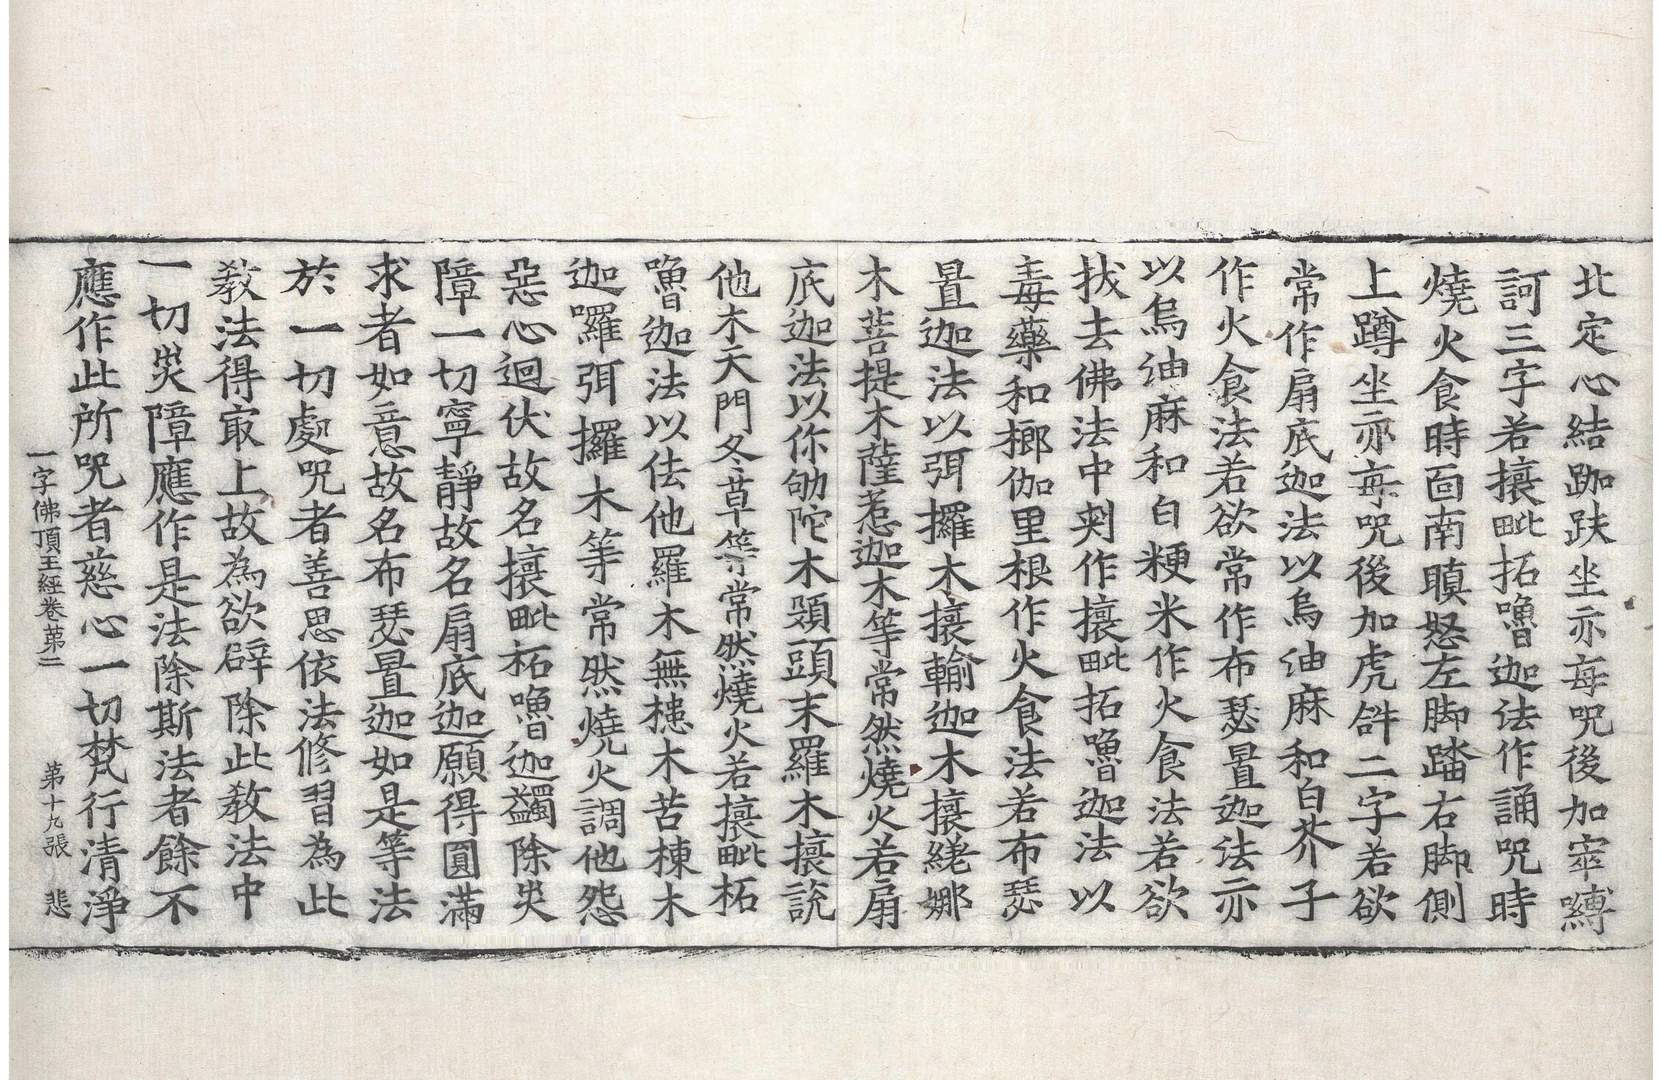 北定心結跏趺坐亦每咒後加窣嚩
訶三字若攘毗拓嚕迦法作誦咒時
燒火食時面南瞋怒左脚踏右脚側
上蹲坐亦每咒後加虎𤙖二字若欲
常作扇底迦法以烏油麻和白芥子
作火食法若欲常作布瑟置迦法亦
以烏油麻和白粳米作火食法若欲
拔去佛法中刺作攘毗拓嚕迦法以
毒藥和榔伽里根作火食法若布瑟
置迦法以弭攞木攘輸迦木攘繞娜
木菩提木薩惹迦木等常然燒火若扇
底迦法以你劬陀木頞頭末羅木攘說
他木天門冬草等常然燒火若攘毗柘
嚕迦法以佉他羅木無槵木苦楝木
迦囉弭攞木等常然燒火調他怨
惡心迴伏故名攘毗柘嚕迦蠲除災
障一切寧靜故名扇底迦願得圓滿
求者如意故名布瑟置迦如是等法
於一切處咒者善思依法修習為此
教法得最上故為欲辟除此教法中
一切災障應作是法除斯法者餘不
應作此所咒者慈心一切梵行清淨
一字佛頂王經卷第二 第十九張 悲